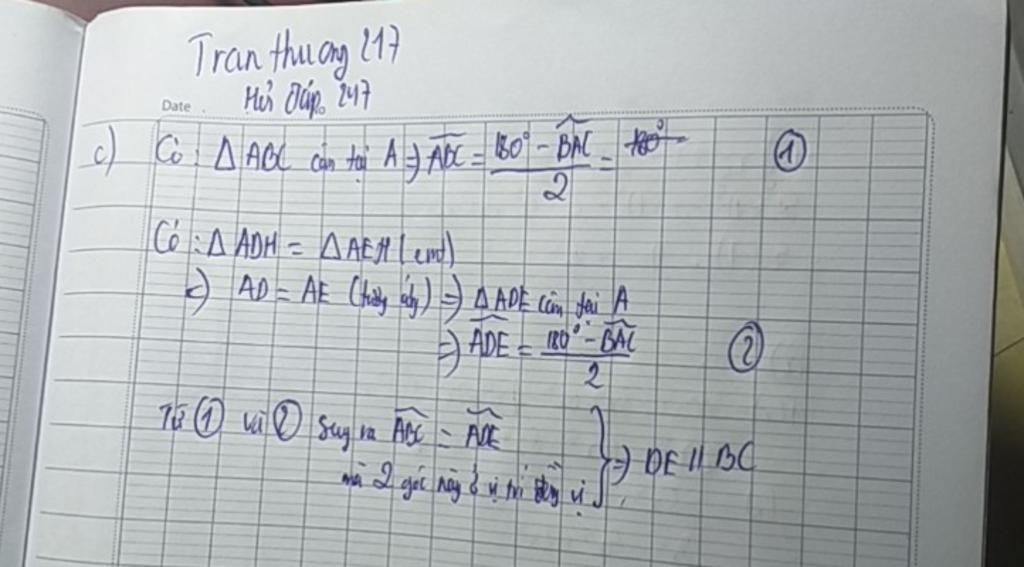 Tran thuong 217
Hỏi Đáp 247
Date
c) Có: Δ ABC cân tại A => ABC = (180° - BAC)/2 = 180° ①
Có: Δ ADH = Δ AEH (cmt)
=> AD = AE (tương ứng) => Δ ADE cân tại A
=> ADE = (180° - BAC)/2 ②
Từ ① và ② suy ra ABC = ADE
mà 2 góc này ở vị trí đồng vị
} => DE // BC